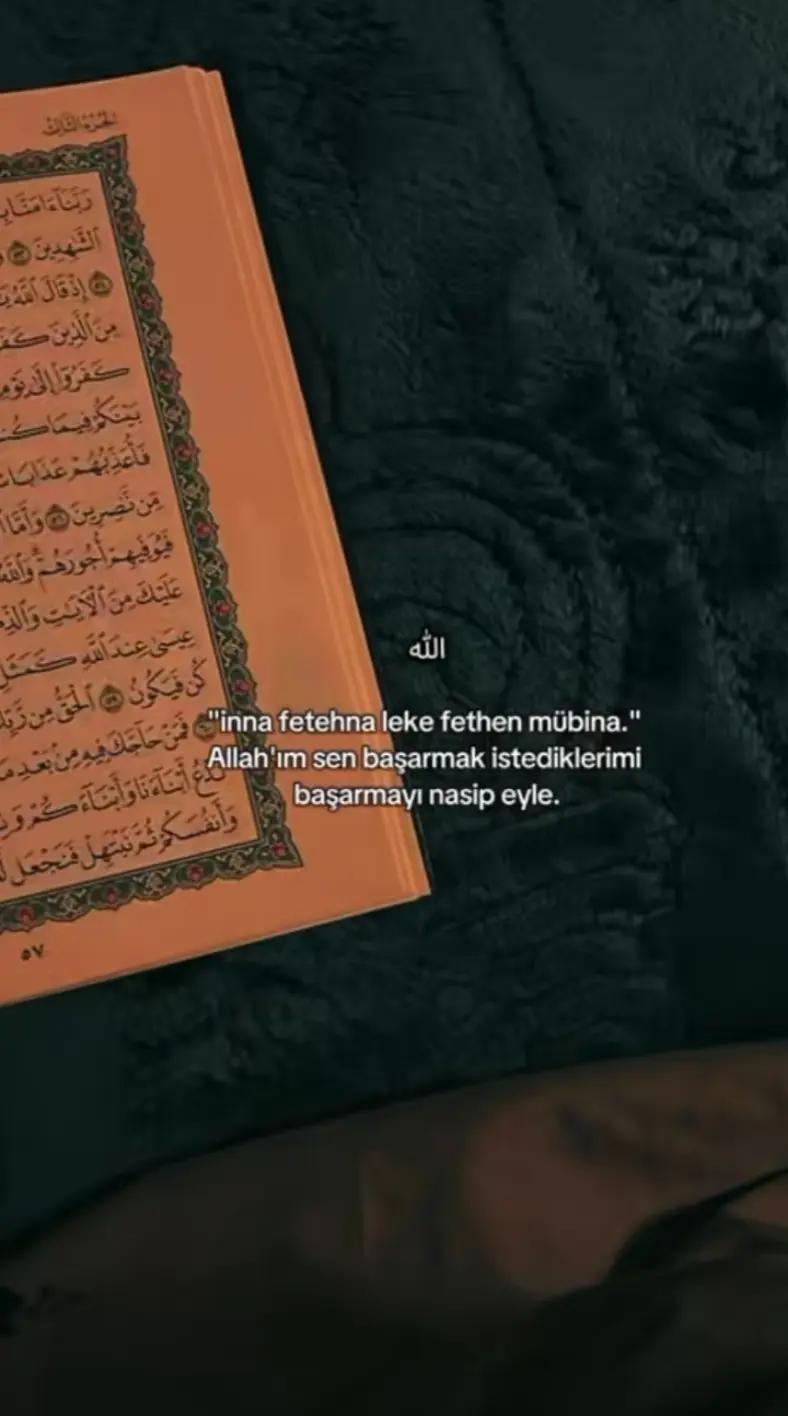 الجزء الثالث
رَبَّنَآ ءَامَنَّا
ٱلشَّٰهِدِينَ
إِذْ قَالَ ٱللَّهُ
مِنَ ٱلَّذِينَ
كَفَرُوٓا۟ إِلَىٰ يَوْمِ
بَيْنَكُمْ فِيمَا
فَأُعَذِّبُهُمْ عَذَابًا
مِّن نَّٰصِرِينَ ٥٦ وَأَمَّا
فَيُوَفِّيهِمْ أُجُورَهُمْ وَٱللَّهُ
عَلَيْكَ مِنَ ٱلْءَايَٰتِ
عِيسَىٰ عِندَ ٱللَّهِ كَمَثَلِ
كُن فَيَكُونُ ٥٩ ٱلْحَقُّ مِن
فَمَنْ حَآجَّكَ فِيهِ مِنۢ بَعْدِ
نَدْعُ أَبْنَآءَنَا وَأَبْنَآءَكُمْ
وَأَنفُسَكُمْ ثُمَّ نَبْتَهِلْ فَنَجْعَل
٥٧
الله
"inna fetehna leke fethen mübina."
Allah'ım sen başarmak istediklerimi
başarmayı nasip eyle.